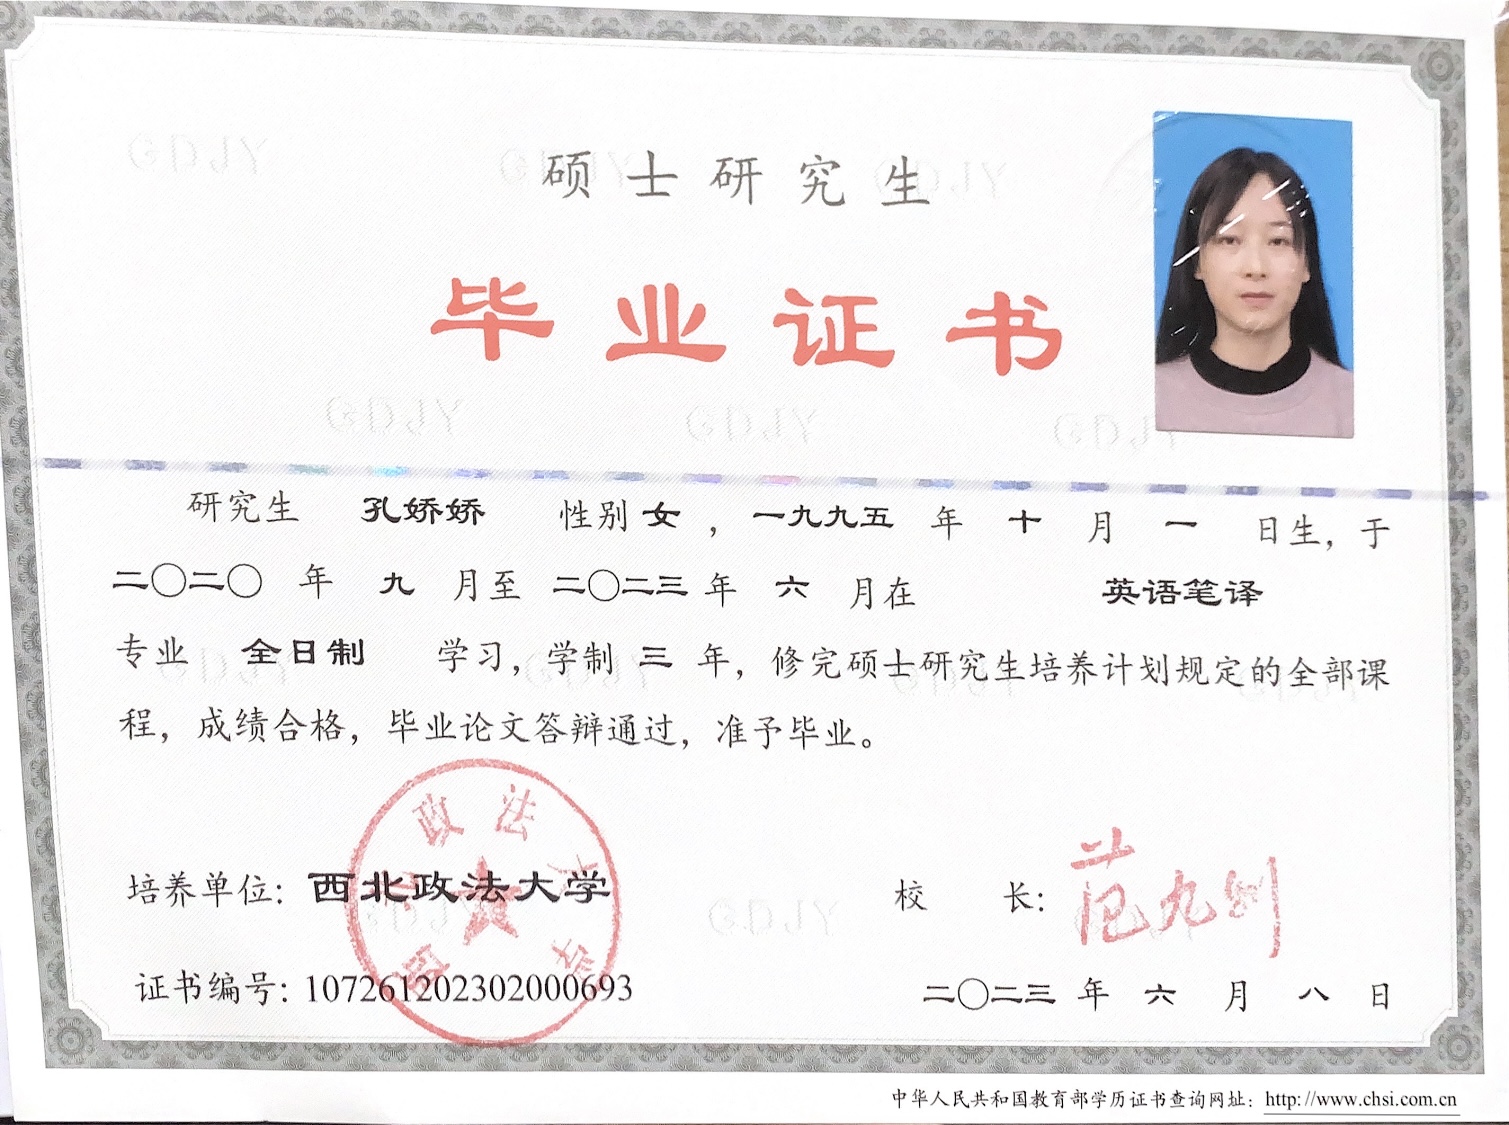 硕士研究生
毕业证书
研究生 孔娇娇 性别 女 ，一九九五 年 十 月 一 日生，于
二〇二〇 年 九 月至 二〇二三 年 六 月在 英语笔译
专业 全日制 学习，学制 三 年，修完硕士研究生培养计划规定的全部课
程，成绩合格，毕业论文答辩通过，准予毕业。
培养单位：西北政法大学
校 长：范九利
证书编号：107261202302000693
二〇二三 年 六 月 八 日
西北政法大学
中华人民共和国教育部学历证书查询网址：http://www.chsi.com.cn
GDJY
GDJY
GDJY
GDJY
GDJY
GDJY
GDJY